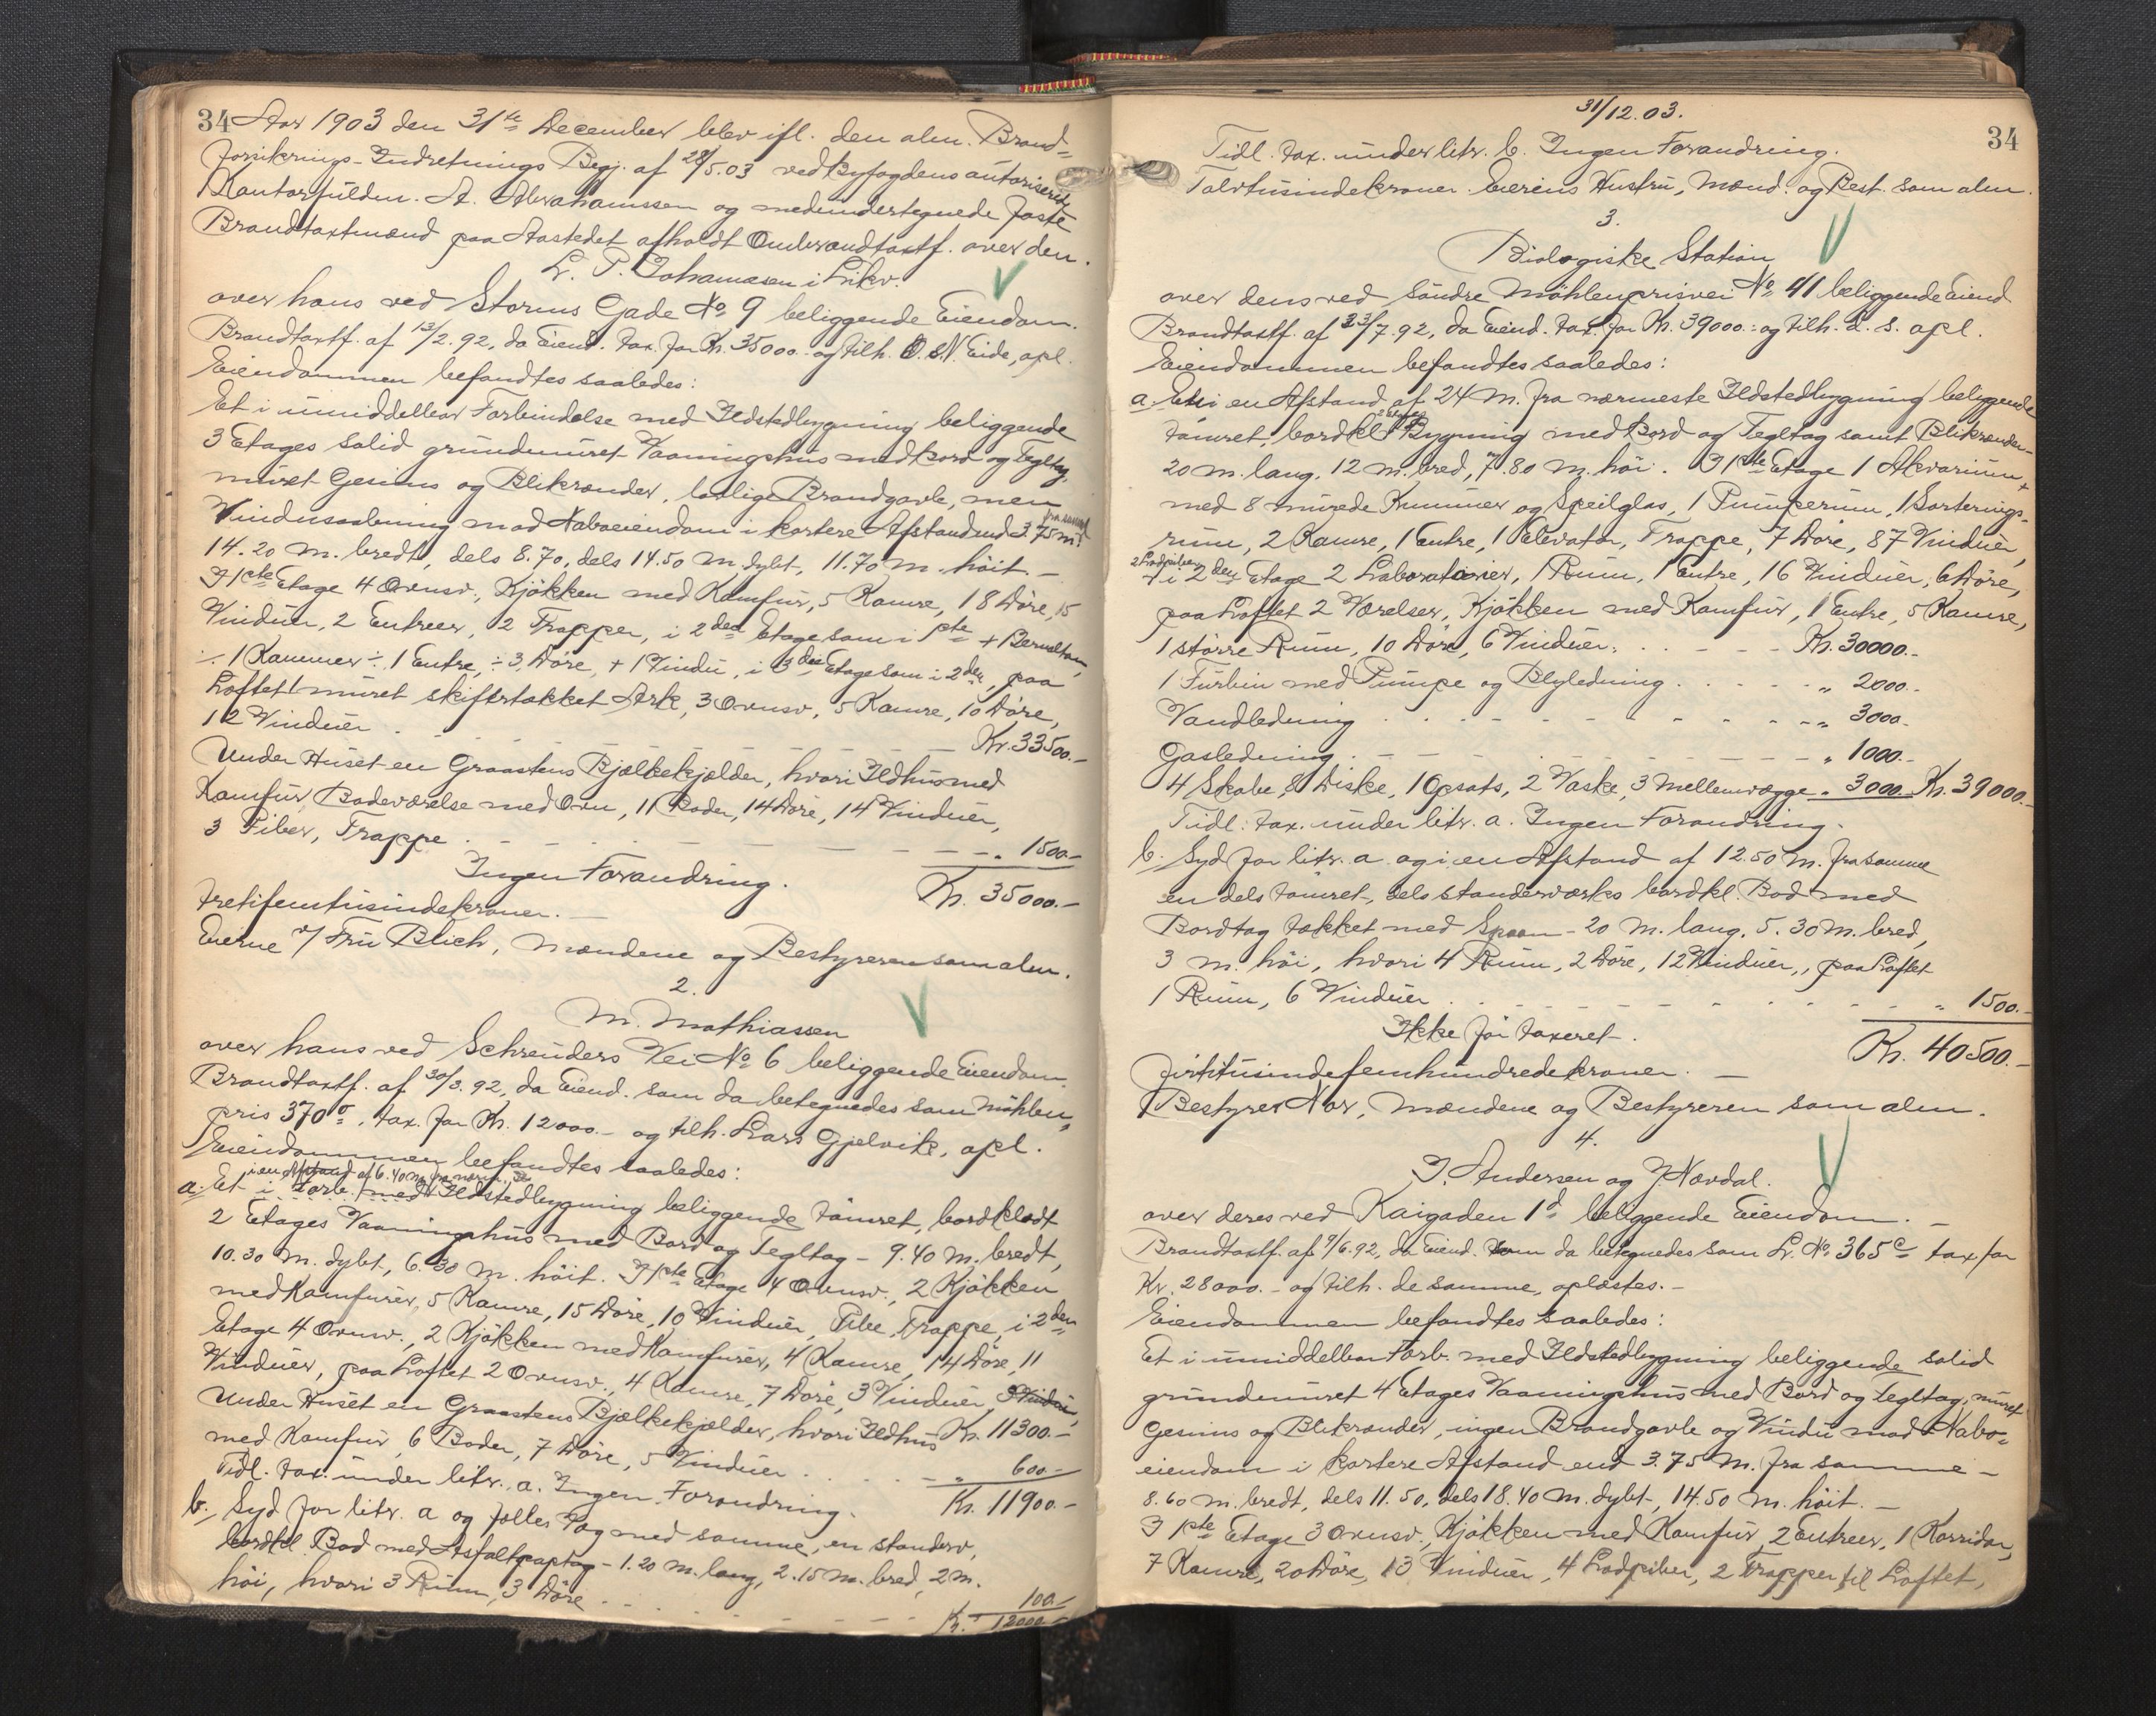 34 Aar 1903 den 31te December blev ifl. den alm. Brand=
forsikrings-Indretnings Begj. af 28/5.03 ved Byfogdens autoriserede
Kontorfuldm. A. Abrahamssen og medundertegnede faste
Brandtaxtmænd paa Aastedet afholdt Ombrandtaxtf. over den.
L. P. Johannesen i Likv.
over hans ved Storms Gade No 9 beliggende Eiendom.
Brandtaxtf. af 13/2.92, da Eiend. tax. for Kr. 35000.- og tilh. O. S. N. Eide, opl.
Eiendommen befandtes saaledes:
Et i umiddelbar Forbindelse med Ildstedbygning beliggende
3 Etages solid grundmuret Vaaningshus med Bord og Tegltag,
muret Gesims og Blikrender, lovlige Brandgavle, men
Vinduesaabning mod Naboeiendom i kortere Afstand end 3.75 m. fra samme
14.20 m. bredt, dels 8.70, dels 14.50 m. dybt, 11.70 m. höit. -
I 1ste Etage 4 Ovnsv., Kjökken med Komfur, 5 Kamre, 18 Döre, 15
Vinduer, 2 Entreer, 2 Trapper, i 2den Etage som i 1ste +
÷ 1 Kammer ÷ 1 Entre, ÷ 3 Döre, + 1 Vindu, i 3die Etage som i 2den, paa
Loftet 1 muret skifertækket Ark, 3 Ovnsv., 5 Kamre, 10 Döre,
12 Vinduer . - - - - Kr. 33500.-
Under Huset en Graastens Bjælkekjælder, hvori Ildhus med
Komfur, Badeværelse med Ovn, 11 Boder, 14 Döre, 14 Vinduer,
3 Piber, Trappe . - - - - - „ 1500.-
Ingen Forandring. Kr. 35000.-
Trettifemtusindekroner. -
Eierne v/ Fru Blich, Mændene og Bestyreren som alm.
2.
M. Mathiassen
over hans ved Schreuders Vei No 6 beliggende Eiendom.
Brandtaxtf. af 30/3.92, da Eiend. som da betegnedes som Möhlen=
pris 370 o, tax. for Kr. 12000.- og tilh. Lars Gjelvik, opl.
Eiendommen befandtes saaledes:
i en Afstand af 6.40 m. fra nærm.
a. Et i Forb. med Ildstedbygning beliggende tömret, bordklædt
2 Etages Vaaningshus med Bord og Tegltag - 9.40 m. bredt,
10.30 m. dybt, 6.30 m. höit. I 1ste Etage 4 Ovnsv., 2 Kjökken
med Komfurer, 5 Kamre, 15 Döre, 10 Vinduer, Pibe, Trappe, i 2den
Etage 4 Ovnsv., 2 Kjökken med Komfurer, 4 Kamre, 14 Döre, 11
Vinduer, paa Loftet 2 Ovnsv., 4 Kamre, 7 Döre, 3 Vinduer,
Kr. 11300.-
Under Huset en Graastens Bjælkekjælder, hvori Ildhus
med Komfur, 6 Boder, 7 Döre, 5 Vinduer . . . . - „ 600.-
Tidl. tax. under litr. a. Ingen Forandring. Kr. 11900.-
b. Syd for litr. a og fælles Tag med samme, en standerv.
bordkl. Bod med Asfaltpaptag - 1.20 m. lang, 2.15 m. bred, 2 m.
höi, hvori 3 Rum, 3 Döre . . . . - - - 100.-
Kr. 12000.-
31/12.03.
34
Tidl. tax. under litr. b. Ingen Forandring.
Tolvtusindekroner. Eierens Hustru, Mænd. og Best. som alm.
3.
Biologiske Station
over dens ved Söndre Möhlenprisvei No 41 beliggende Eiend.
Brandtaxtf. af 23/7.92, da Eiend. tax. for Kr. 39000.- og tilh. d. s. opl.
Eiendommen befandtes saaledes:
a. En i en Afstand af 24 M. fra nærmeste Ildstedbygning beliggende
tömret, bordkl. 2 Etages Bygning med Bord og Tegltag samt Blikrender -
20 m. lang, 12 m. bred, 7.80 m. höi. I 1ste Etage 1 Akvarium,
med 8 murede Kummer og Speilglas, 1 Pumperum, 1 Sorterings-
rum, 2 Kamre, 1 Entre, 1 Elevator, Trappe, 7 Döre, 87 Vinduer,
2 Lodpiber
+ i 2den Etage 2 Laboratorier, 1 Rum, 1 Entre, 16 Vinduer, 6 Döre,
paa Loftet 2 Værelser, Kjökken med Komfur, 1 Entre, 5 Kamre,
1 större Rum, 10 Döre, 6 Vinduer. . - - - Kr. 30000.-
1 Turbin med Pumpe og Blyledning . . . . „ 2000.-
Vandledning . . - - - - - „ 3000.-
Gasledning . - - - - - - „ 1000.-
4 Skabe, 8 Diske, 1 Opsats, 2 Vaske, 3 Mellemvægge „ 3000.- Kr. 39000.-
Tidl. tax. under litr. a. Ingen Forandring.
b. Syd for litr. a og i en Afstand af 12.50 m. fra samme
en dels tömret, dels standerværks bordkl. Bod med
Bordtag tækket med Spaan - 20 m. lang, 5.30 m. bred,
3 m. höi, hvori 4 Rum, 2 Döre, 12 Vinduer, paa Loftet
1 Rum, 6 Vinduer . . - - - - - „ 1500.-
Ikke för taxeret. Kr. 40500.-
Firtitusindefemhundredekroner. -
Bestyrer Nor, Mændene og Bestyreren som alm.
4.
J. Andersen og J. Nordal.
over deres ved Kaigaden 1d beliggende Eiendom. -
Brandtaxtf. af 9/6.92, da Eiend. som da betegnedes som Lr. No 365 c tax for
Kr. 28000.- og tilh. de samme, oplæstes. -
Eiendommen befandtes saaledes:
Et i umiddelbar Forb. med Ildstedbygning beliggende solid
grundmuret 4 Etages Vaaningshus med Bord og Tegltag, muret
Gesims og Blikrender, ingen Brandgavle og Vindu mod Nabo=
eiendom i kortere Afstand end 3.75 M. fra samme -
8.60 m. bredt, dels 11.50, dels 18.40 m. dybt, 14.50 m. höit. -
I 1ste Etage 3 Ovnsv., Kjökken med Komfur, 2 Entreer, 1 Korridor,
7 Kamre, 20 Döre, 13 Vinduer, 4 Lodpiber, 2 Trapper til Loftet,